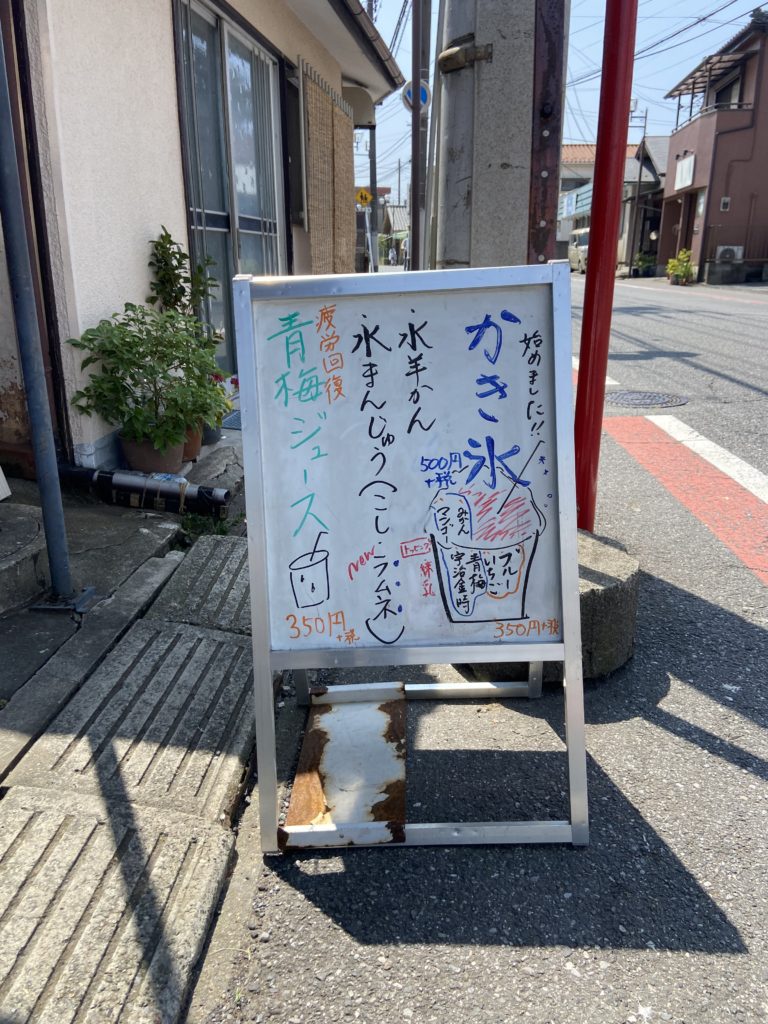 始めました!!
かき氷
500円
+税
みかん
マンゴー
ブルー
いちご
青梅
宇治金時
トッピング
練乳
350円+税
氷羊かん
氷まんじゅう(こし・ラムネ)
New
疲労回復
青梅ジュース
350円
+税